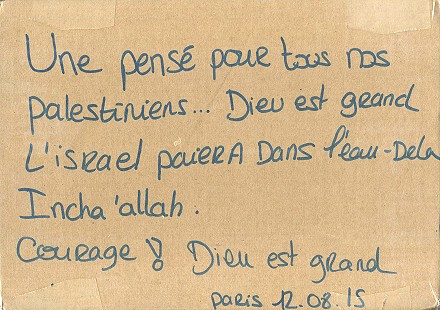 Une pensé pour tous nos
palestiniens... Dieu est grand
L'israel paiera Dans l'eau-Dela
Incha'allah.
Courage ! Dieu est grand
Paris 12.08.15